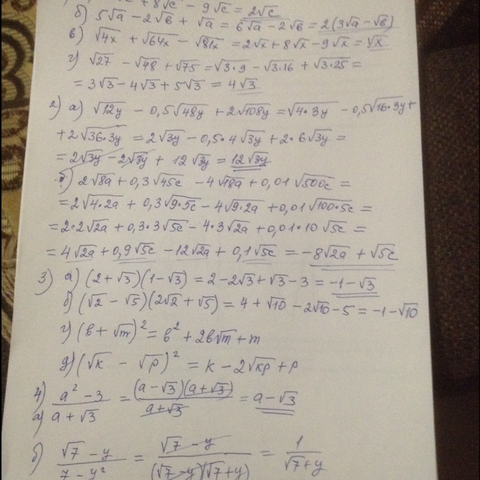 + 8√c - 9√c = 2√c
б) 5√a - 2√в + √a = 6√a - 2√в = 2(3√a - √в)
в) √4x + √64x - √81x = 2√x + 8√x - 9√x = √x
г) √27 - √48 + √75 = √3·9 - √3·16 + √3·25 =
= 3√3 - 4√3 + 5√3 = 4√3
2) a) √12y - 0,5√48y + 2√108y = √4·3y - 0,5√16·3y +
+ 2√36·3y = 2√3y - 0,5·4√3y + 2·6√3y =
= 2√3y - 2√3y + 12√3y = 12√3y
б) 2√8a + 0,3√45c - 4√18a + 0,01√500c =
= 2√4·2a + 0,3√9·5c - 4√9·2a + 0,01√100·5c =
= 2·2√2a + 0,3·3√5c - 4·3√2a + 0,01·10√5c =
= 4√2a + 0,9√5c - 12√2a + 0,1√5c = -8√2a + √5c
3) a) (2+√3)(1-√3) = 2 - 2√3 + √3 - 3 = -1 - √3
б) (√2 - √5)(2√2 + √5) = 4 + √10 - 2√10 - 5 = -1 - √10
г) (в + √m)² = в² + 2в√m + m
д) (√k - √p)² = k - 2√kp + p
4) a) a² - 3 / a + √3 = (a - √3)(a + √3) / a + √3 = a - √3
б) √7 - y / 7 - y² = √7 - y / (√7 - y)(√7 + y) = 1 / √7 + y